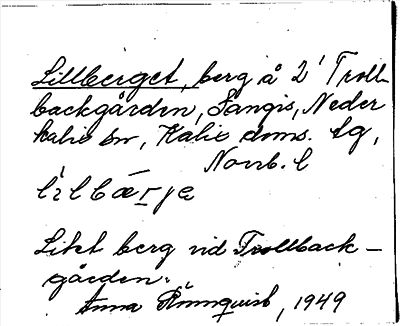 Lillberget, berg å 2' Troll-
backgården, Sangis, Neder
kalix sn, Kalix doms. tg,
Norrb. l
lìlbærjə
Litet berg vid Trollback-
gården.
Anna Rönnquist, 1949